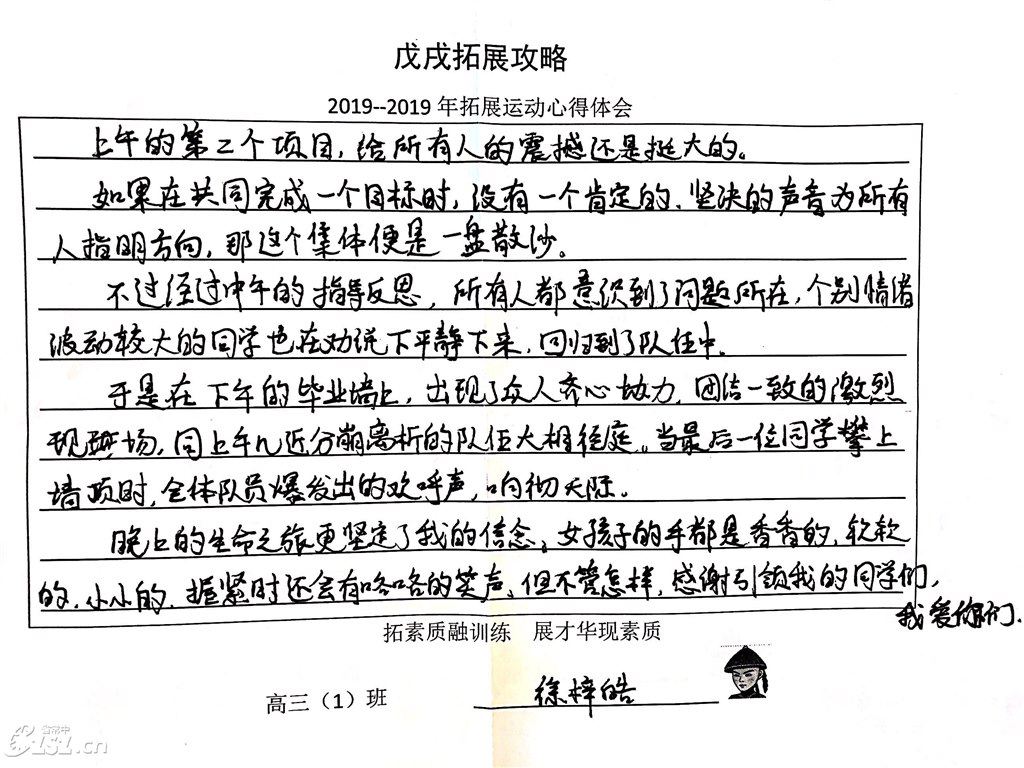 戊戌拓展攻略
2019--2019 年拓展运动心得体会
上午的第二个项目，给所有人的震撼还是挺大的。
如果在共同完成一个目标时，没有一个肯定的、坚决的声音为所有
人指明方向，那这个集体便是一盘散沙。
不过经过中午的指导反思，所有人都意识到了问题所在，个别情绪
波动较大的同学也在劝说下平静下来，回归到了队伍中。
于是在下午的毕业墙上，出现了众人齐心协力，团结一致的激烈
现场，同上午几近分崩离析的队伍大相径庭。当最后一位同学攀上
墙顶时，全体队员爆发出的欢呼声，响彻天际。
晚上的生命之旅更坚定了我的信念。女孩子的手都是香香的，软软
的、小小的、握紧时还会有咯咯的笑声。但不管怎样，感谢引领我的同学们，
我爱你们。
拓素质融训练 展才华现素质
高三（1）班
徐梓皓
151.cn